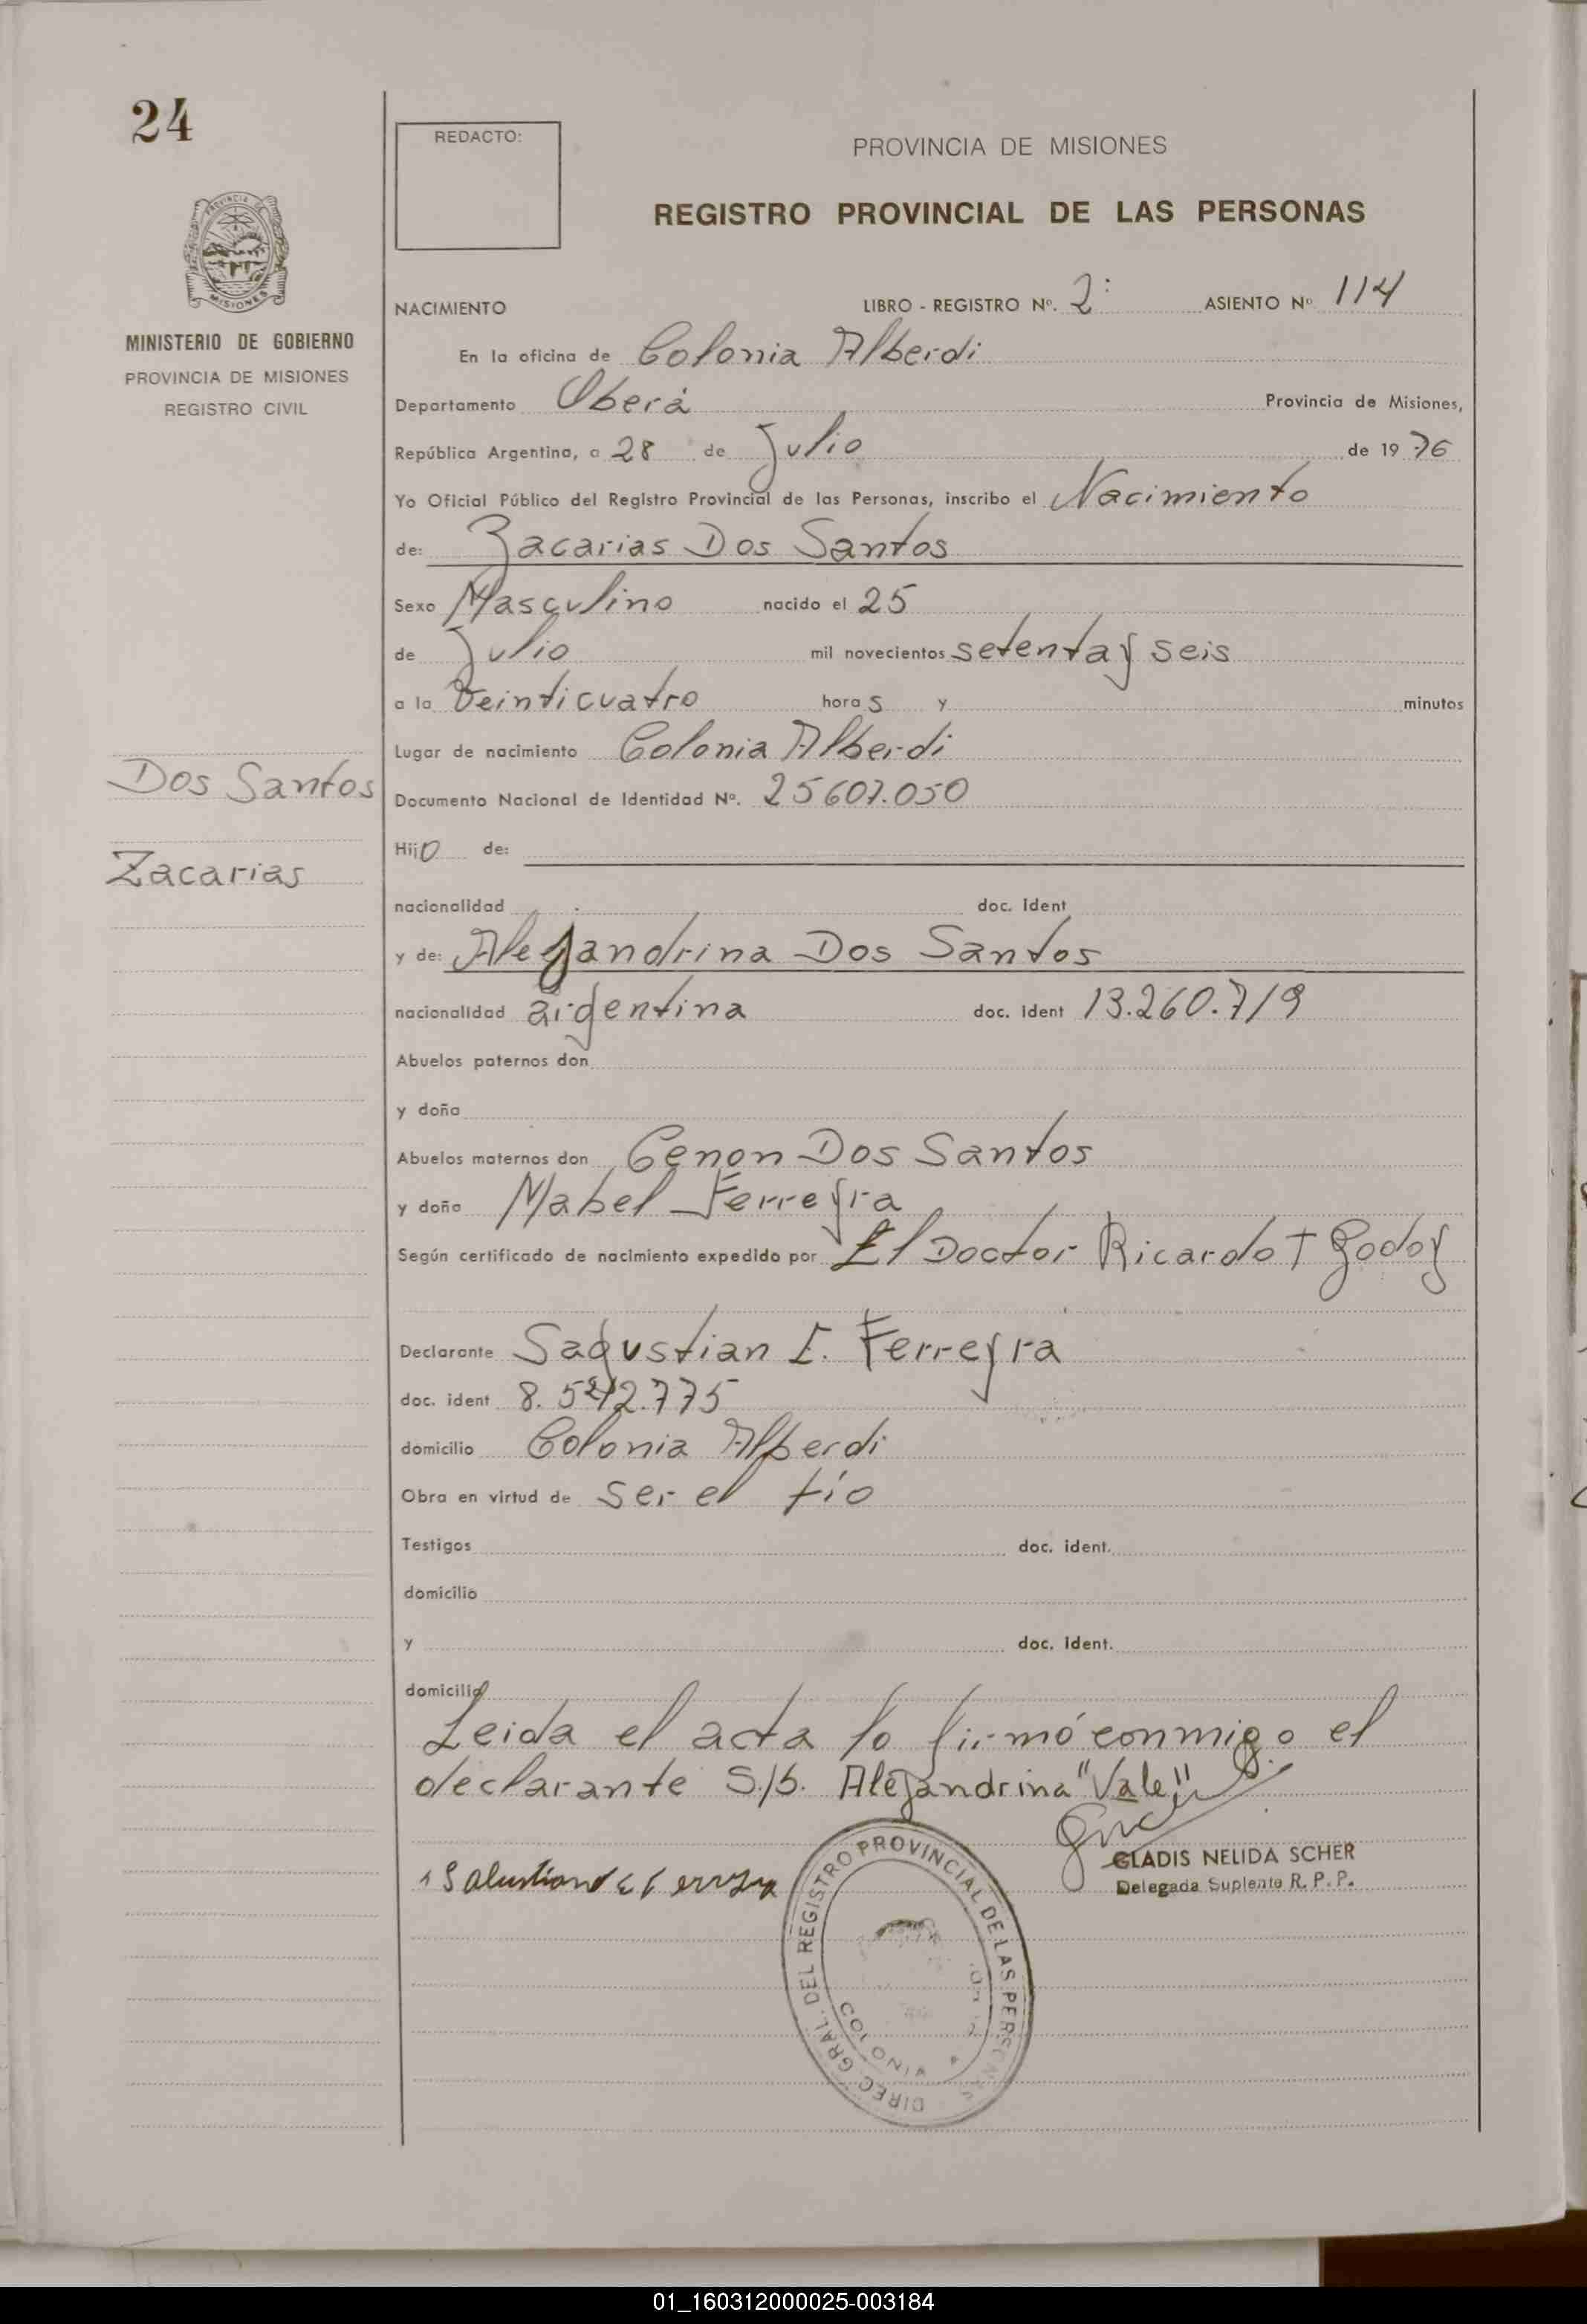 24
REDACTO:
PROVINCIA DE MISIONES
REGISTRO PROVINCIAL DE LAS PERSONAS
PROVINCIA DE
MISIONES
MINISTERIO DE GOBIERNO
PROVINCIA DE MISIONES
REGISTRO CIVIL
NACIMIENTO LIBRO - REGISTRO Nº. 2: ASIENTO Nº 114
En la oficina de Colonia Alberdi
Departamento Oberá Provincia de Misiones,
República Argentina, a 28 de Julio de 19 76
Yo Oficial Público del Registro Provincial de las Personas, inscribo el Nacimiento
de: Zacarias Dos Santos
Sexo Masculino nacido el 25
de Julio mil novecientos setenta y seis
a la Veinticuatro horas y minutos
Lugar de nacimiento Colonia Alberdi
Dos Santos
Documento Nacional de Identidad Nº. 25607.050
Hijo de:
Zacarias
nacionalidad doc. Ident
y de: Alejandrina Dos Santos
nacionalidad argentina doc. Ident 13.260.719
Abuelos paternos don
y doña
Abuelos maternos don Cenon Dos Santos
y doña Mabel Ferreyra
Según certificado de nacimiento expedido por El Doctor Ricardo T Godoy
Declarante Sagustian E. Ferreyra
doc. ident 8.542.775
domicilio Colonia Alberdi
Obra en virtud de ser el tío
Testigos doc. ident.
domicilio
y doc. ident.
domicilio
Leida el acta lo firmó conmigo el
declarante S/b. Alejandrina "Vale".
Salustiano E Ferreyra
GLADIS NELIDA SCHER
Delegada Suplente R. P. P.
DIREC. GRAL. DEL REGISTRO PROVINCIAL DE LAS PERSONAS
COLONIA
01_160312000025-003184